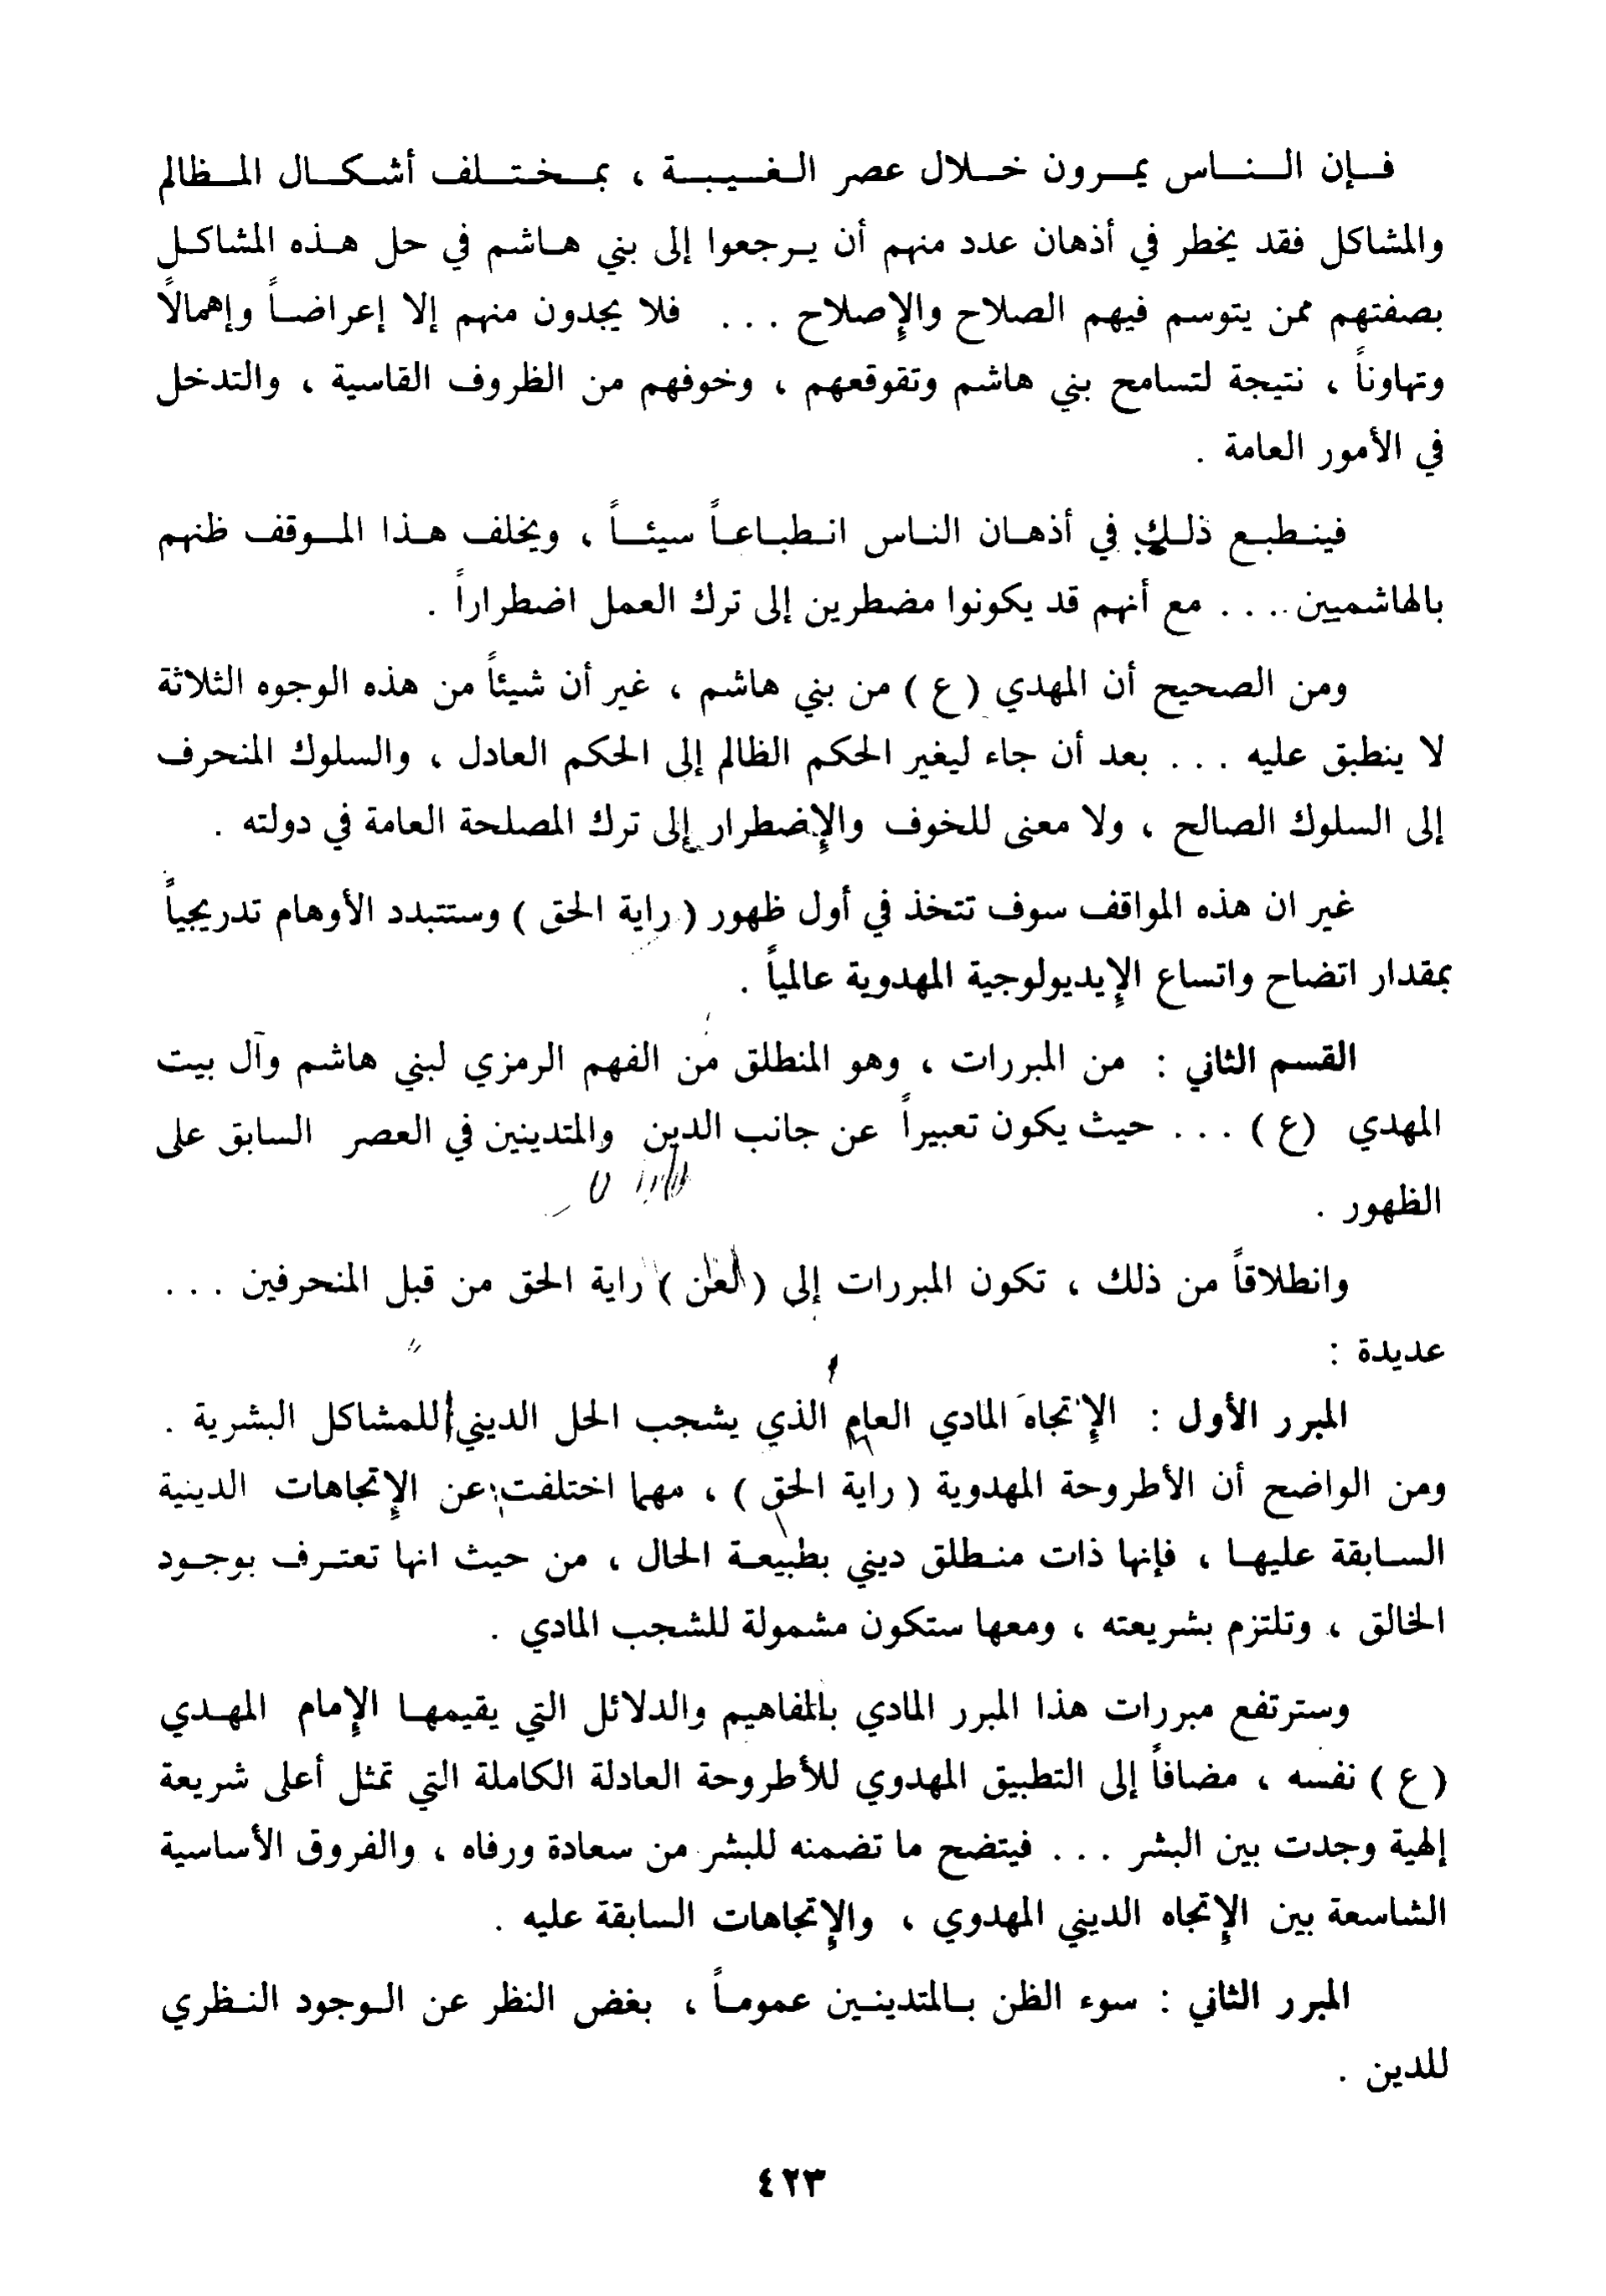 فإن الناس يمرون خلال عصر الغيبة ، بمختلف أشكال المظالم
والمشاكل فقد يخطر في أذهان عدد منهم أن يرجعوا إلى بني هاشم في حل هذه المشاكل
بصفتهم ممن يتوسم فيهم الصلاح والإصلاح . . . فلا يجدون منهم إلا إعراضاً وإهمالاً
وتهاوناً ، نتيجة لتسامح بني هاشم وتقوقعهم ، وخوفهم من الظروف القاسية ، والتدخل
في الأمور العامة .
فينطبع ذلك في أذهان الناس انطباعاً سيئاً ، ويخلف هذا الموقف ظنهم
بالهاشميين . . . مع أنهم قد يكونوا مضطرين إلى ترك العمل اضطراراً .
ومن الصحيح أن المهدي ( ع ) من بني هاشم ، غير أن شيئاً من هذه الوجوه الثلاثة
لا ينطبق عليه . . . بعد أن جاء ليغير الحكم الظالم إلى الحكم العادل ، والسلوك المنحرف
إلى السلوك الصالح ، ولا معنى للخوف والإضطرار إلى ترك المصلحة العامة في دولته .
غير ان هذه المواقف سوف تتخذ في أول ظهور ( راية الحق ) وستتبدد الأوهام تدريجياً
بمقدار اتضاح واتساع الإيديولوجية المهدوية عالمياً .
القسم الثاني : من المبررات ، وهو المنطلق من الفهم الرمزي لبني هاشم وآل بيت
المهدي (ع ) . . . حيث يكون تعبيراً عن جانب الدين والمتدينين في العصر السابق على
الظهور .
وانطلاقاً من ذلك ، تكون المبررات إلى ( لعن ) راية الحق من قبل المنحرفين . . .
عديدة :
المبرر الأول : الإتجاه المادي العام الذي يشجب الحل الديني للمشاكل البشرية .
ومن الواضح أن الأطروحة المهدوية ( راية الحق ) ، مهما اختلفت عن الإتجاهات الدينية
السابقة عليها ، فإنها ذات منطلق ديني بطبيعة الحال ، من حيث انها تعترف بوجود
الخالق ، وتلتزم بشريعته ، ومعها ستكون مشمولة للشجب المادي .
وسترتفع مبررات هذا المبرر المادي بالمفاهيم والدلائل التي يقيمها الإمام المهدي
( ع ) نفسه ، مضافاً إلى التطبيق المهدوي للأطروحة العادلة الكاملة التي تمثل أعلى شريعة
إلهية وجدت بين البشر . . . فيتضح ما تضمنه للبشر من سعادة ورفاه ، والفروق الأساسية
الشاسعة بين الإتجاه الديني المهدوي ، والإتجاهات السابقة عليه .
المبرر الثاني : سوء الظن بالمتدينين عموماً ، بغض النظر عن الوجود النظري
للدين .
٤٢٣